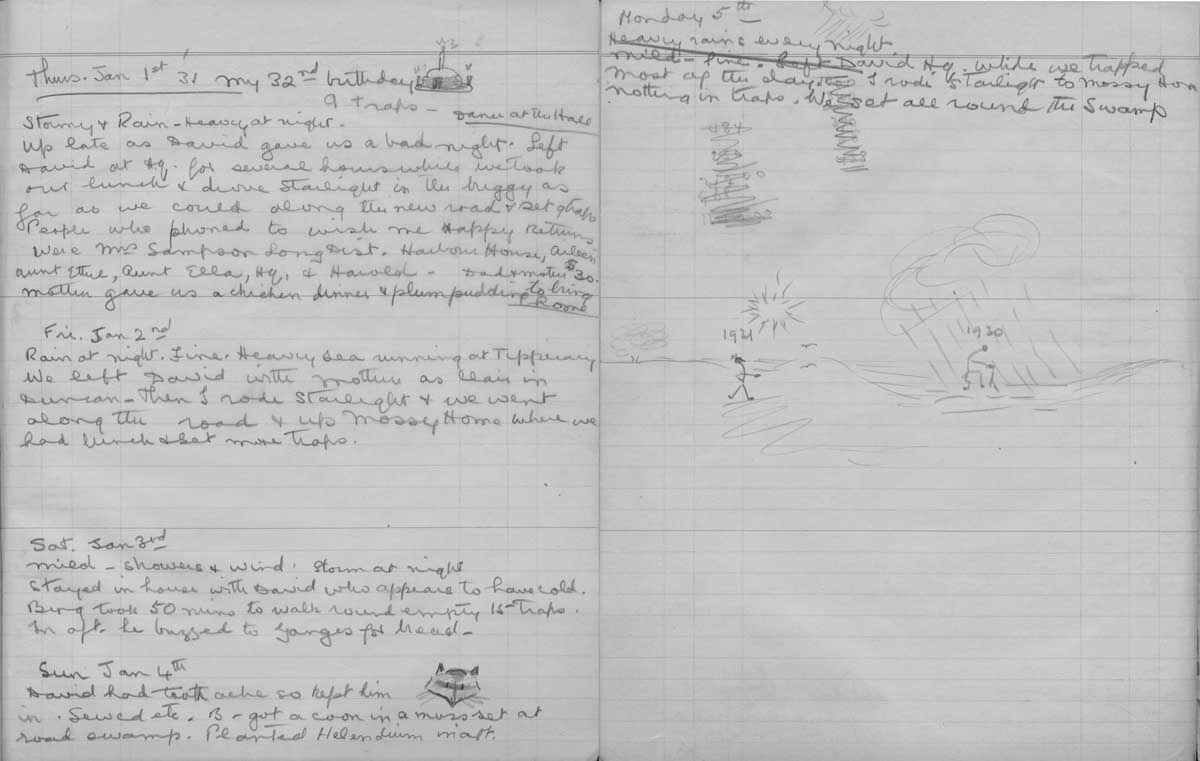 Thurs. Jan 1st 31 my 32nd birthday
9 traps - Dance at the Hall
Stormy & Rain - Heavy at night.
Up late as David gave us a bad night. Left
David at Hq. for several hours while we took
our lunch & drove Starlight in the buggy as
far as we could along the new road & set 9 traps
People who phoned to wish me Happy Returns
were Mrs Sampson Long Dist. Harbour House, Aileen
Aunt Ethel, Aunt Ella, Hq, & Harold - Dad & mother $30.
mother gave us a chicken dinner & plum pudding to bring
Room
Fri. Jan 2nd
Rain at night. Fine. Heavy sea running at Tipperary
We left David with mother as Clair in
Duncan - Then I rode Starlight & we went
along the road & up Mossy Home where we
had lunch & set more Traps.
Sat. Jan 3rd
mild - showers & wind. Storm at night
Stayed in house with David who appears to have cold.
Berg took 50 mins to walk round empty 15 Traps.
In aft. he buzzed to Ganges for bread -
Sun Jan 4th
David had tooth ache so kept him
in. Sewed etc. B - got a coon in a moss set at
road swamp. Planted Helenium in aft.
Monday 5th
Heavy rains every night
mild - fine - Left David Hq. while we trapped
most of the day. I rode Starlight to Mossy Hom
nothing in traps. We set all round the Swamp
1931
1930